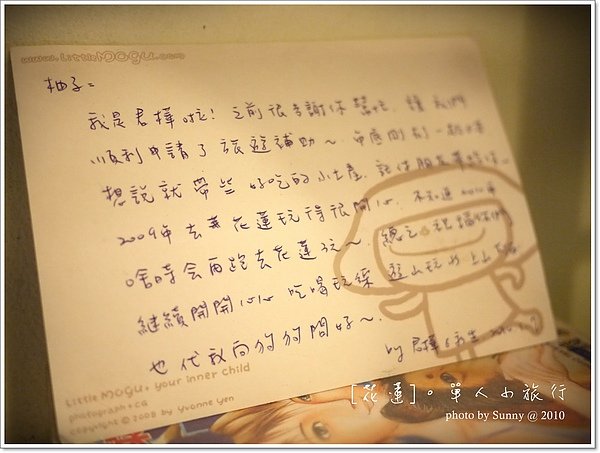 www.LittleMOGU.com
柚子=
我是君樺啦!之前很多謝你幫忙,讓我們
順利申請了旅遊補助~
想說就帶些好吃的小土產,
2009年去花蓮玩得很開心,
啥時會再跑去花蓮玩~總之
繼續開開心心吃喝玩樂
也代我向狗狗問好~
by 君樺
Little MOGU, your inner child
photograph+CG
copyright © 2008 by Yvonne Yen
[花蓮]。單人小旅行
photo by Sunny @ 2010